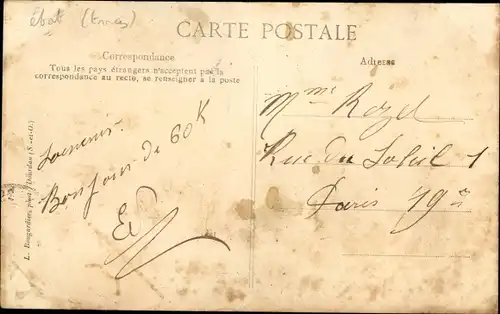 CARTE POSTALE
Correspondance
Tous les pays étrangers n'acceptent pas la
correspondance au recto, se renseigner à la poste
Adresse
Souvenir.
Bonjour de 60 K
Mme Rozel
Rue du Soleil 1
Paris 19e
L. Desgardins, phot., Dourdan (S.-et-O.)